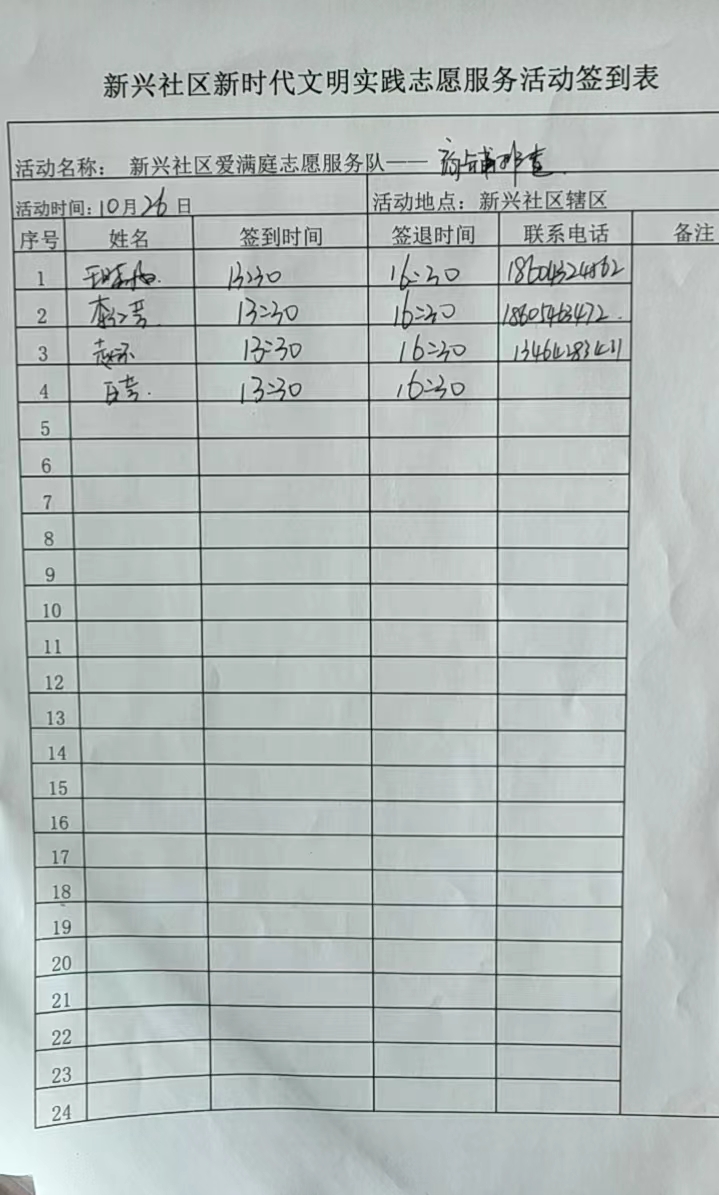 新兴社区新时代文明实践志愿服务活动签到表
活动名称： 新兴社区爱满庭志愿服务队——商铺排查
活动时间：10月26日 活动地点：新兴社区辖区
序号 姓名 签到时间 签退时间 联系电话 备注
1 13:30 16:30
2 13:30 16:30 18605463472
3 13:30 16:30
4 13:30 16:30
5
6
7
8
9
10
11
12
13
14
15
16
17
18
19
20
21
22
23
24